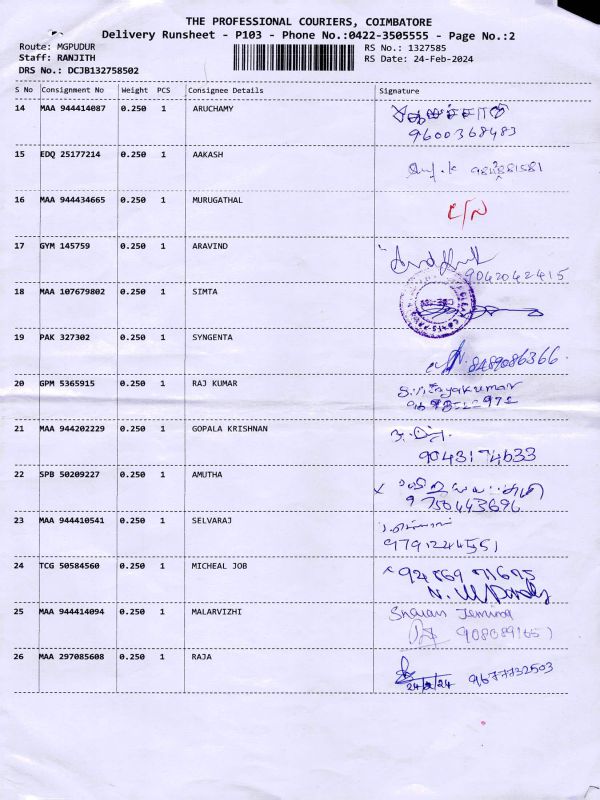 THE PROFESSIONAL COURIERS, COIMBATORE
Delivery Runsheet - P103 - Phone No.:0422-3505555 - Page No.:2
Route: MGPUDUR RS No.: 1327585
Staff: RANJITH RS Date: 24-Feb-2024
DRS No.: DCJB132758502
S No Consignment No Weight PCS Consignee Details Signature
14 MAA 944414087 0.250 1 ARUCHAMY
9600368483
15 EDQ 25177214 0.250 1 AAKASH
16 MAA 944434665 0.250 1 MURUGATHAL
17 GYM 145759 0.250 1 ARAVIND
9042042415
18 MAA 107679802 0.250 1 SIMTA
19 PAK 327302 0.250 1 SYNGENTA
8489086366
20 GPM 5365915 0.250 1 RAJ KUMAR
21 MAA 944202229 0.250 1 GOPALA KRISHNAN
9043174633
22 SPB 50209227 0.250 1 AMUTHA
9750443696
23 MAA 944410541 0.250 1 SELVARAJ
9791224551
24 TCG 50584560 0.250 1 MICHEAL JOB
25 MAA 944414094 0.250 1 MALARVIZHI
Sharan Jemima
26 MAA 297085608 0.250 1 RAJA
24/2/24 9677732503